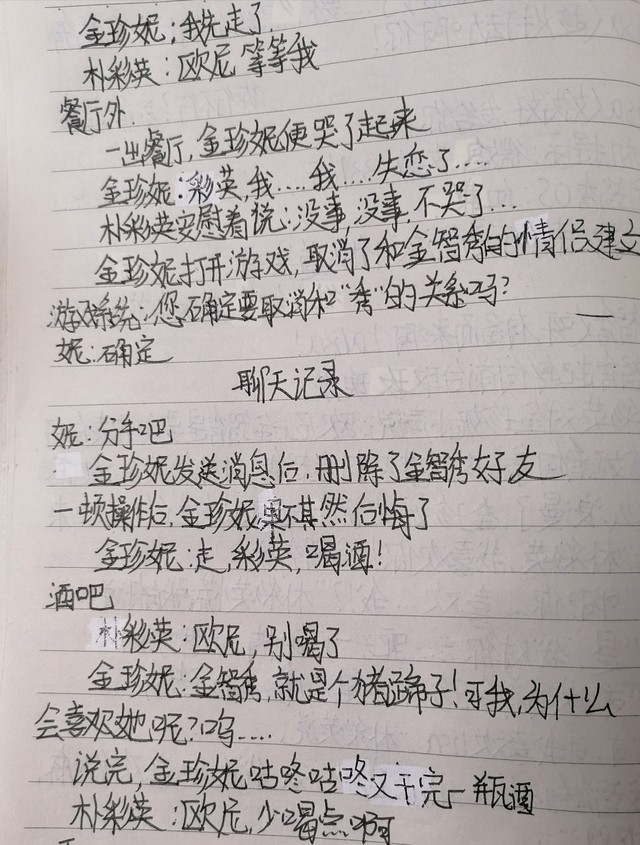 金珍妮：我先走了.
朴彩英：欧尼 等等我
餐厅外.
一出餐厅，金珍妮便哭了起来
金珍妮：彩英，我....我....失恋了....
朴彩英安慰着说：没事，没事，不哭了...
金珍妮打开游戏，取消了和金智秀的情侣建立
游戏系统：您确定要取消和“秀”的关系吗？
妮：确定
聊天记录
妮：分手吧
金珍妮发送消息后，删除了金智秀好友
一顿操作后，金珍妮果不其然后悔了
金珍妮：走，彩英，喝酒！
酒吧
朴彩英：欧尼，别喝了
金珍妮：金智秀，就是个猪蹄子！可我，为什么
会喜欢她呢？呜....
说完，金珍妮咕咚咕咚又干完一瓶酒
朴彩英：欧尼，少喝点啊